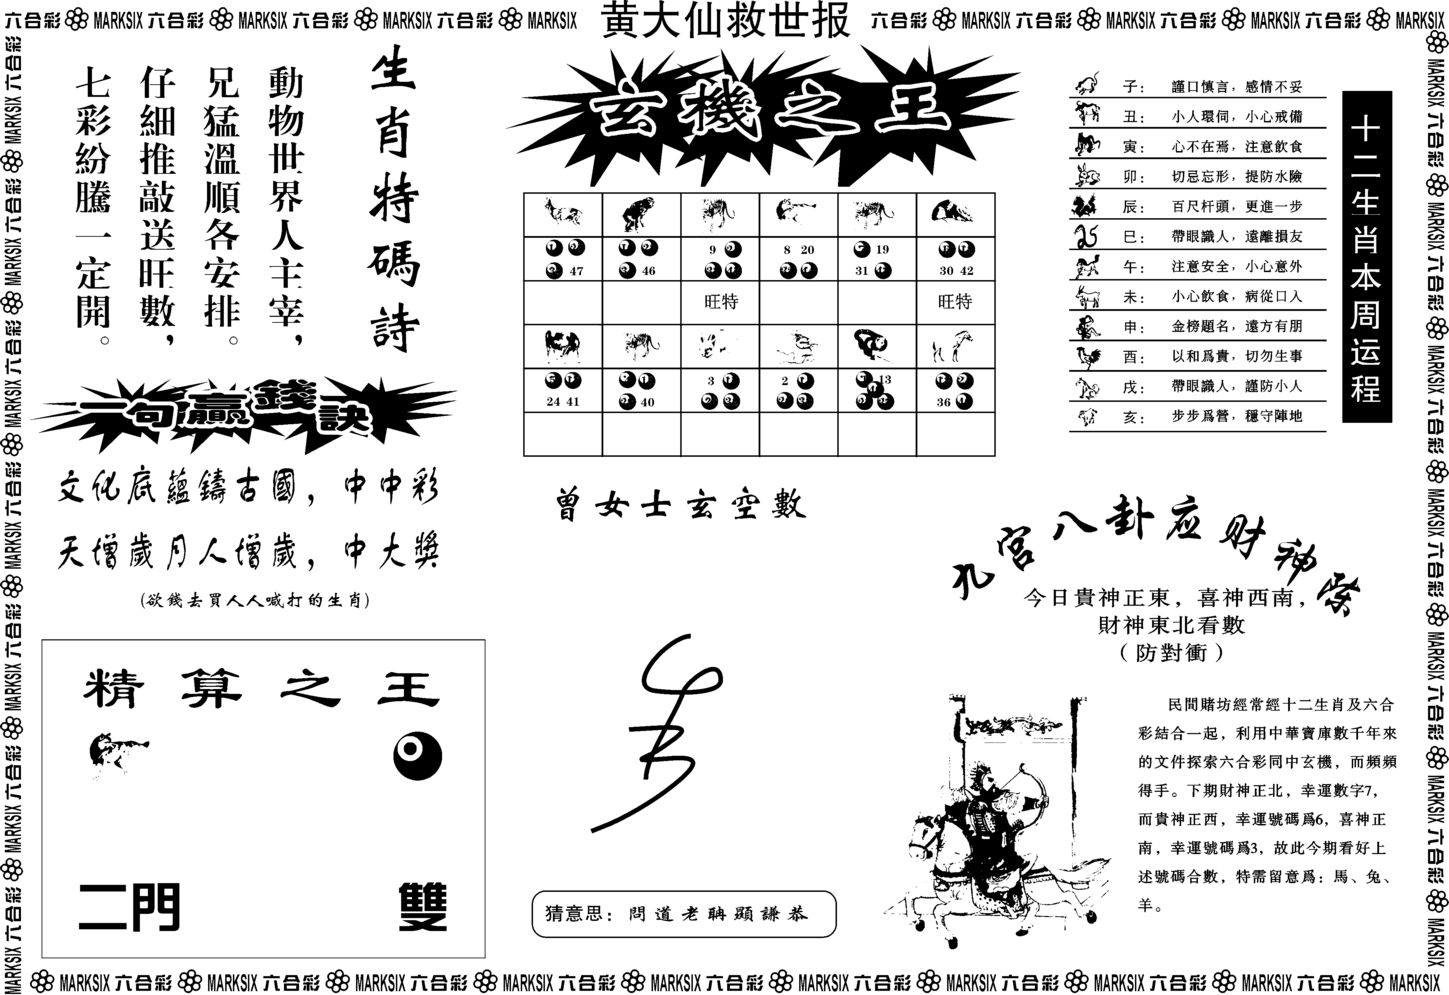 六合彩 MARKSIX 六合彩 MARKSIX 六合彩 MARKSIX 六合彩 MARKSIX
黄大仙救世报
六合彩 MARKSIX 六合彩 MARKSIX 六合彩 MARKSIX 六合彩 MARKSIX
生肖特碼詩
動物世界人主宰，
兄猛溫順各安排。
仔細推敲送旺數，
七彩紛騰一定開。
一句贏錢訣
文化底蘊鑄古國，中中彩
天增歲月人增歲，中大獎
(欲錢去買人人喊打的生肖)
精算之王
二門
雙
玄機之王
9 8 20 19
47 46 31 30 42
旺特 旺特
3 2 13
24 41 40 36
曾女士玄空數
猜意思：問道老聃顯謙恭
十二生肖本周运程
子： 謹口慎言，感情不妥
丑： 小人環伺，小心戒備
寅： 心不在焉，注意飲食
卯： 切忌忘形，提防水險
辰： 百尺杆頭，更進一步
巳： 帶眼識人，遠離損友
午： 注意安全，小心意外
未： 小心飲食，病從口入
申： 金榜題名，遠方有朋
酉： 以和爲貴，切勿生事
戌： 帶眼識人，謹防小人
亥： 步步爲營，穩守陣地
九宮八卦应财神
今日貴神正東，喜神西南，
財神東北看數
（防對衝）
民間賭坊經常經十二生肖及六合
彩結合一起，利用中華寶庫數千年來
的文件探索六合彩同中玄機，而頻頻
得手。下期財神正北，幸運數字7，
而貴神正西，幸運號碼爲6，喜神正
南，幸運號碼爲3，故此今期看好上
述號碼合數，特需留意爲：馬、兔、
羊。
MARKSIX 六合彩 MARKSIX 六合彩 MARKSIX 六合彩 MARKSIX 六合彩 MARKSIX 六合彩 MARKSIX 六合彩 MARKSIX 六合彩 MARKSIX 六合彩 MARKSIX 六合彩 MARKSIX